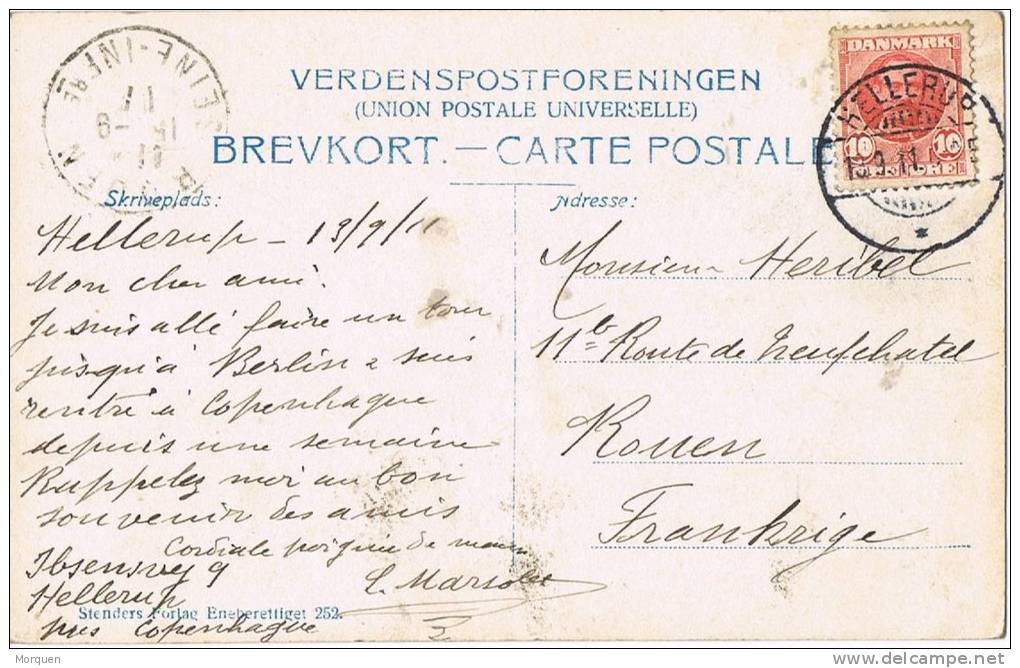 VERDENSPOSTFORENINGEN
(UNION POSTALE UNIVERSELLE)
BREVKORT. — CARTE POSTALE
DANMARK
10 10
ØRE
HELLERUP
13.9.11.
ROUEN
SEINE-INFRE
15 - 9
11
Skriveplads:
Hellerup - 13/9/11
Mon cher ami.
Je suis allé faire un tour
jusqu'à Berlin & suis
rentré à Copenhague
depuis une semaine
Rappelez moi au bon
souvenir des amis
Cordiale poignée de main
Ibsensvej 9
Hellerup
près Copenhague
Stenders Forlag Eneberettiget 252.
Adresse:
Monsieur Heribel
11b Route de Neufchatel
Rouen
Frankrige
Morquen
delcampe.net